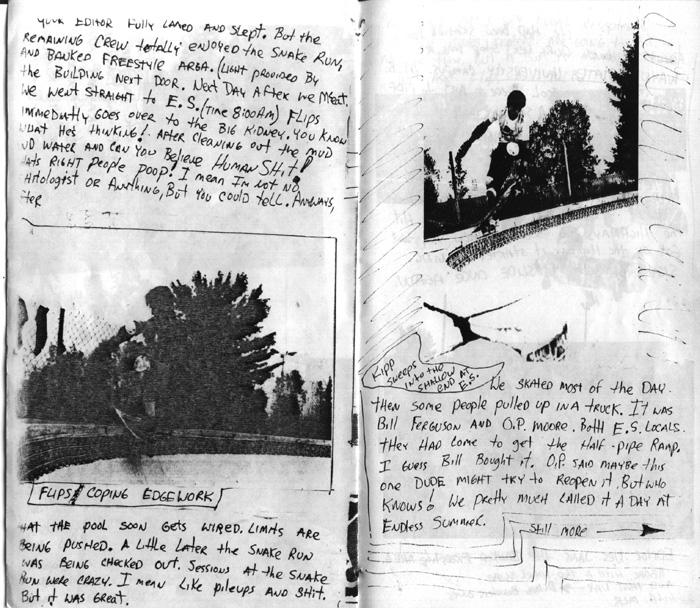 YOUR EDITOR FULLY LAMED AND SLEPT. BUT THE
REMAINING CREW TOTALLY ENJOYED THE SNAKE RUN,
AND BANKED FREESTYLE AREA. (LIGHT PROVIDED BY
THE BUILDING NEXT DOOR. NEXT DAY AFTER WE MEET,
WE WENT STRAIGHT TO E.S. (TIME 8:00AM) FLIPS
IMMEDIATLY GOES OVER TO THE BIG KIDNEY. YOU KNOW
WHAT HE'S THINKING! AFTER CLEANING OUT THE MUD
WATER AND CAN YOU BELIEVE HUMAN SHIT!
RIGHT PEOPLE POOP! I MEAN I'M NOT NO
OR ANYTHING, BUT YOU COULD TELL. ANYWAYS,
FLIPS COPING EDGEWORK
AT THE POOL SOON GETS WIRED. LIMITS ARE
BEING PUSHED. A LITTLE LATER THE SNAKE RUN
WAS BEING CHECKED OUT. SESSIONS AT THE SNAKE
RUN WERE CRAZY. I MEAN LIKE PILEUPS AND SHIT.
BUT IT WAS GREAT.
KIPP
SWEEPS
INTO THE
SHALLOW
END AT
E.S.
WE SKATED MOST OF THE DAY.
THEN SOME PEOPLE PULLED UP IN A TRUCK. IT WAS
BILL FERGUSON AND O.P. MOORE. BOTH E.S. LOCALS.
THEY HAD COME TO GET THE HALF-PIPE RAMP.
I GUESS BILL BOUGHT IT. O.P. SAID MAYBE THIS
ONE DUDE MIGHT TRY TO REOPEN IT. BUT WHO
KNOWS! WE PRETTY MUCH CALLED IT A DAY AT
ENDLESS SUMMER.
STILL MORE